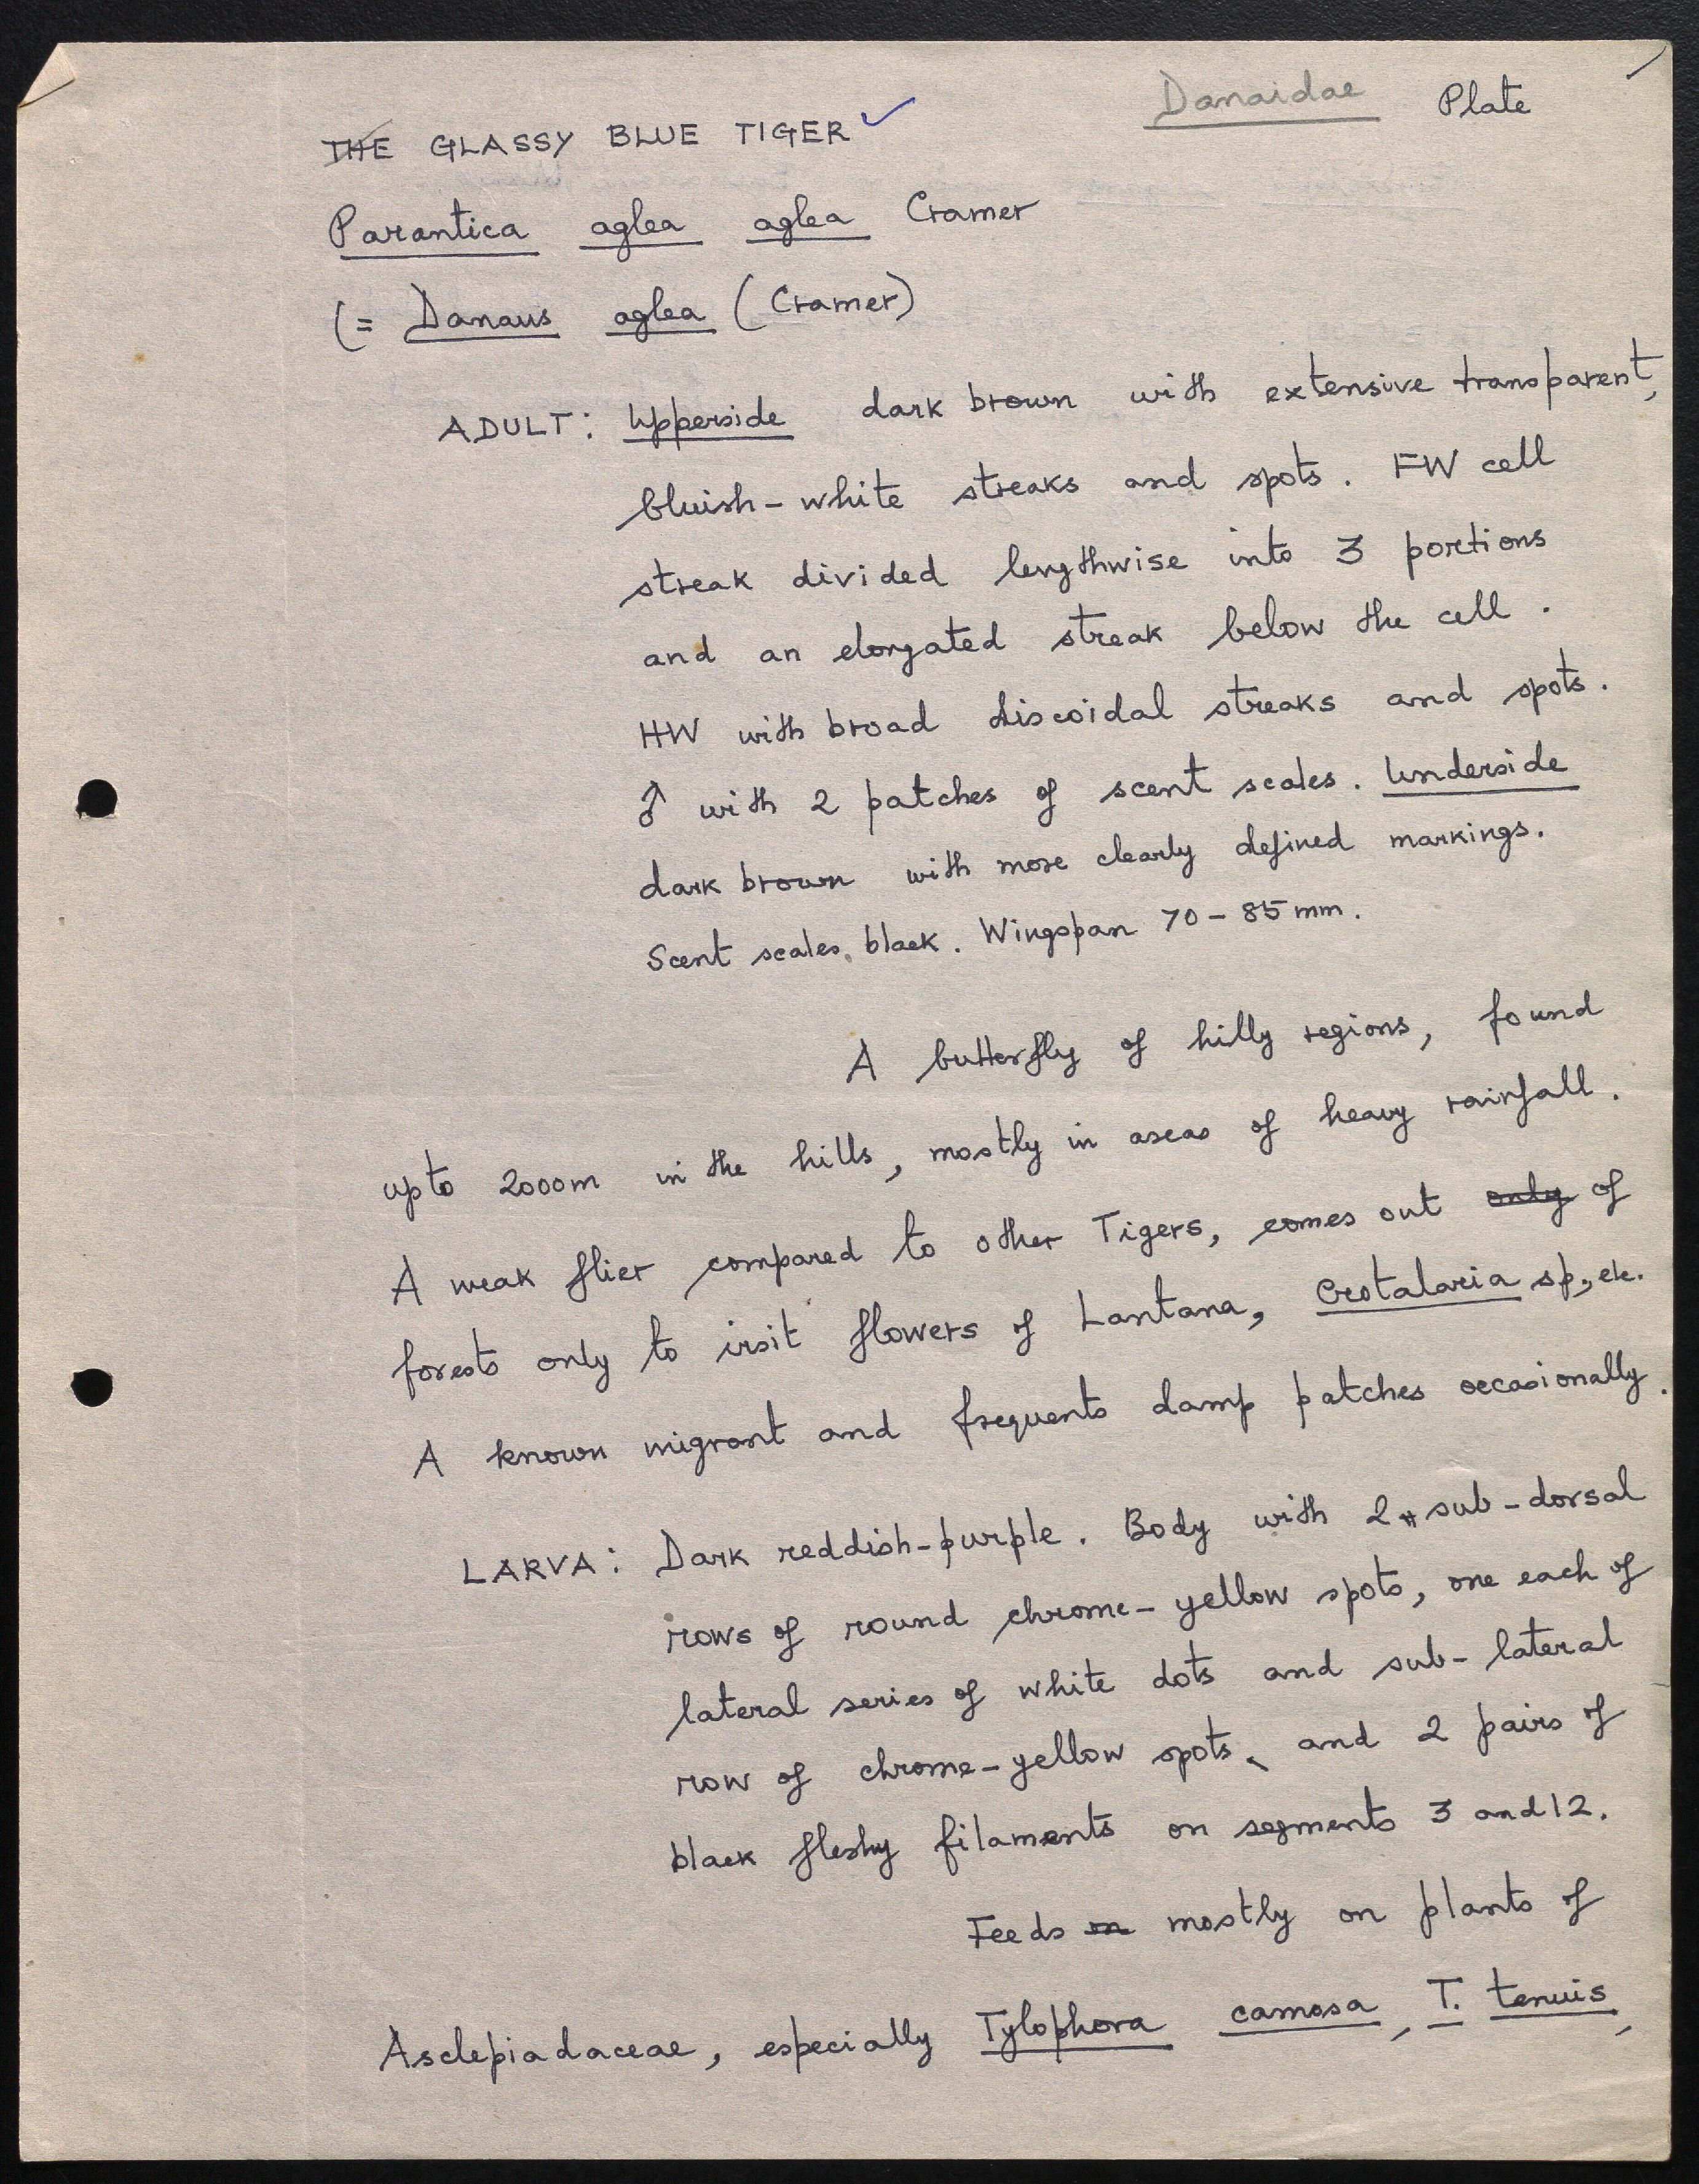 Danaidae Plate
THE GLASSY BLUE TIGER
Parantica aglea aglea Cramer
(= Danaus aglea (Cramer)
ADULT: Upperside dark brown with extensive transparent,
bluish-white streaks and spots. FW cell
streak divided lengthwise into 3 portions
and an elongated streak below the cell.
HW with broad discoidal streaks and spots.
♂ with 2 patches of scent scales. Underside
dark brown with more clearly defined markings.
Scent scales, black. Wingspan 70-85mm.
A butterfly of hilly regions, found
upto 2000m in the hills, mostly in areas of heavy rainfall.
A weak flier compared to other Tigers, comes out only of
forests only to visit flowers of Lantana, Crotalaria sp., etc.
A known migrant and frequents damp patches occasionally.
LARVA: Dark reddish-purple. Body with 2 sub-dorsal
rows of round chrome-yellow spots, one each of
lateral series of white dots and sub-lateral
row of chrome-yellow spots, and 2 pairs of
black fleshy filaments on segments 3 and 12.
Feeds on mostly on plants of
Asclepiadaceae, especially Tylophora carnosa, T. tenuis,